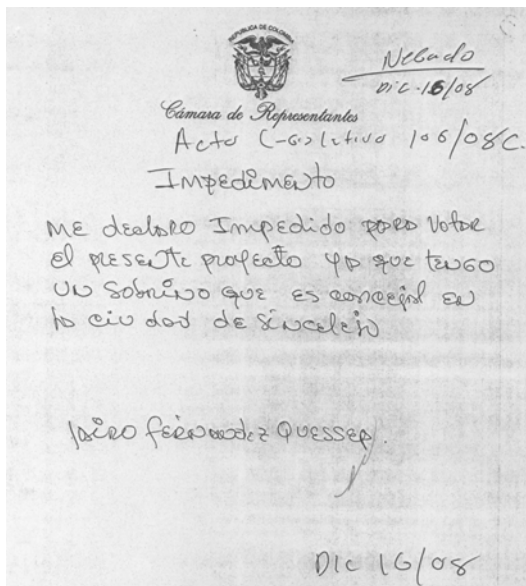 REPUBLICA DE COLOMBIA
Negado
Dic-16/08
Cámara de Representantes
Acto Legislativo 106/08C.
Impedimento
Me declaro Impedido para votar
el presente proyecto ya que tengo
un sobrino que es concejal en
la ciudad de Sincelejo
Jairo Fernandez Quessep.
Dic 16/08